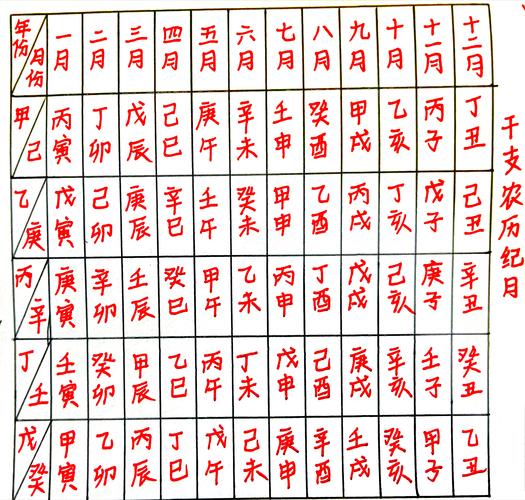 年份 月份 一月 二月 三月 四月 五月 六月 七月 八月 九月 十月 十一月 十二月
甲己 丙寅 丁卯 戊辰 己巳 庚午 辛未 壬申 癸酉 甲戌 乙亥 丙子 丁丑
乙庚 戊寅 己卯 庚辰 辛巳 壬午 癸未 甲申 乙酉 丙戌 丁亥 戊子 己丑
丙辛 庚寅 辛卯 壬辰 癸巳 甲午 乙未 丙申 丁酉 戊戌 己亥 庚子 辛丑
丁壬 壬寅 癸卯 甲辰 乙巳 丙午 丁未 戊申 己酉 庚戌 辛亥 壬子 癸丑
戊癸 甲寅 乙卯 丙辰 丁巳 戊午 己未 庚申 辛酉 壬戌 癸亥 甲子 乙丑
干支农历纪月